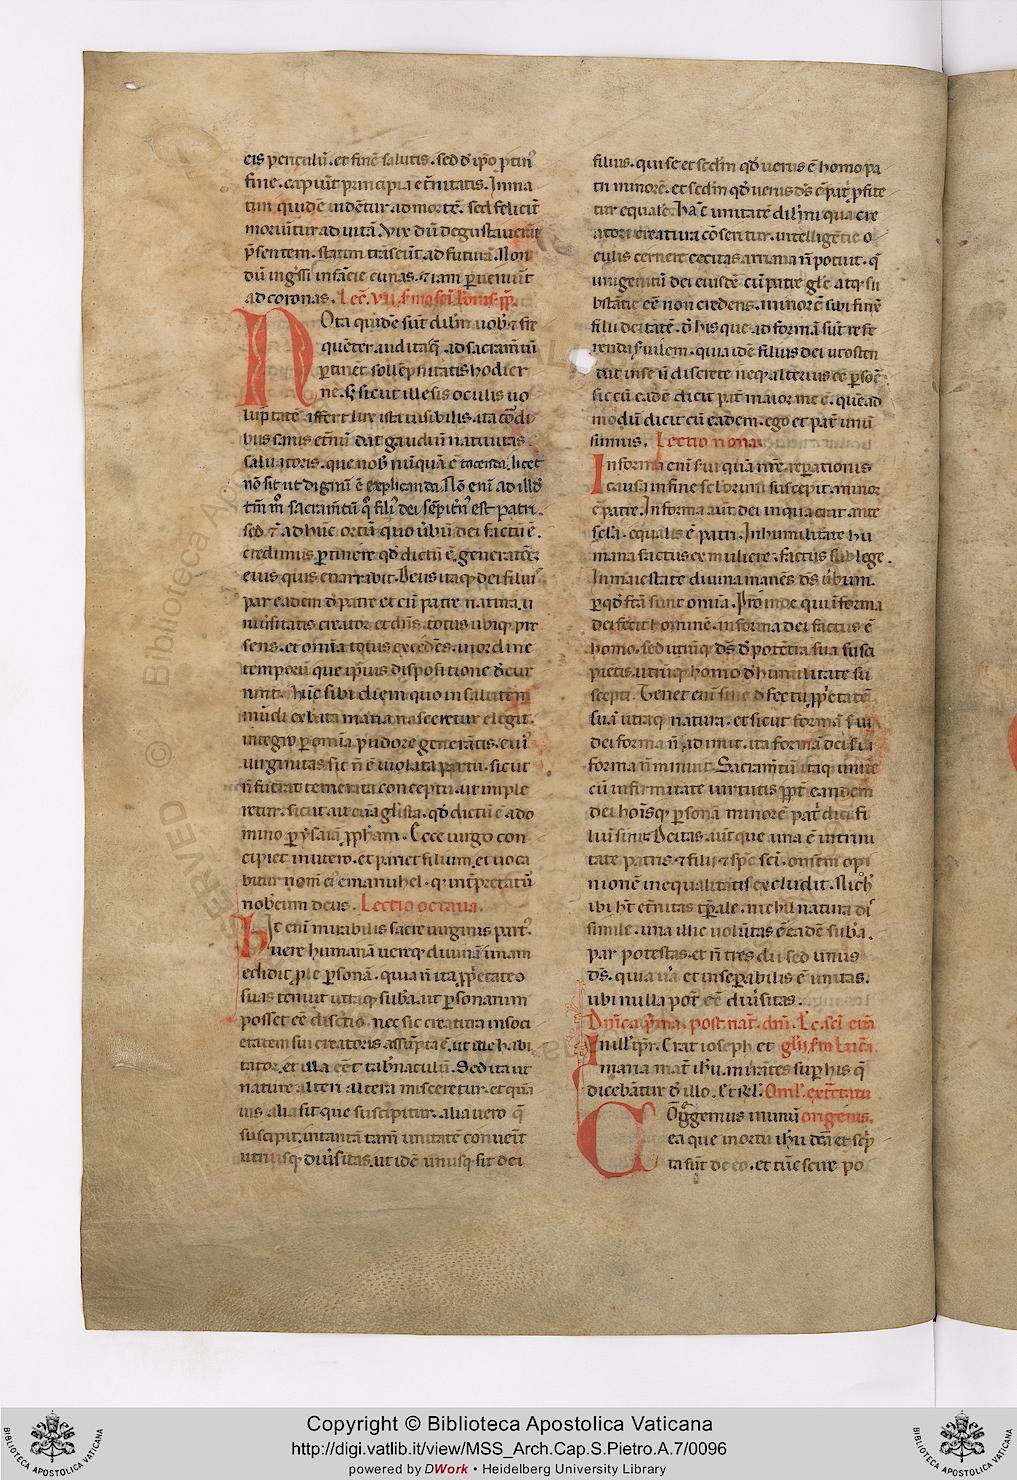 cis periculū. et finē salutis. sed ⁊ ip̄o p̄tin⁹
fine. capiūt principia et̄nitatis. In ma
tim quidē uidētur ad mortē. sed felicit̄
moriūtur ad uitā. Vix dū degustauerūt
p̄sentem. statim trāseūt ad futurā. Non
dū ingr̄ssi infācie cunas. ⁊ iam p̄uenıūt
ad coronas. Lec̄. vii. s̄mo sc̄i leonis. pp̄.
Nota quidē sūt dil̄mi uob̄ ⁊ fre
quēter audita q̄ ad sacram̄tū
p̄tinēt sollēpnitatis hodier
ne. S; sicut illesis oculis uo
luptatē affert lux ista uisibilis. ita cordi
bus sanis et̄nū dat gaudiū natiuitas
saluatoris. que nob̄ nūquā ē tacenda. licet
nō sit ut dignū ē explicanda. Nō enī ad illd̄
tm̄ m̄o sacram̄tū q̄ fili⁹ dei sēpit̄n⁹ est patri.
sed ⁊ ad hūc ortū quo ūbū dei factū ē.
credimus p̄tinere qd̄ dictū ē. generatōēꝫ
eius quis enarrabit. Deus itaq; dei filius
par eadem de patre et cū patre natura. u
niūsitatis creator et dn̄s. totus ubiq; pre
sens. et omīa totus excedēs. in ordine
temporū que ip̄ius dispositione decur
runt. hūc sibi diem quo in salutem
mūdi ex beata maria nasceretur elegit.
integro p̄ omīa pudore generātis. cui⁹
uirginitas sic n̄ ē uiolata partu. sicut
n̄ fuerat temerata conceptu. ut imple
retur. sicut ait euāgl̄ista. qd̄ dictū ē a do
mino p̄ ysaiā pp̄ham. Ecce uirgo con
cipiet in utero. et pariet filium. et uoca
bitur nom̄ ei⁹ emanuhel. q̄ int̄pretatū
nob̄cum deus. Lectio octaua.
Hic enī mirabilis sacre uirginis part⁹.
uere humanā uereq; diuinā unam
edidit ple p̄sonā. quia n̄ ita pp̄etates
suas tenuit utraq; sub̄a. ut p̄sonarum
posset eē disc̄tio. nec sic creatura in soci
etatem sui creatoris assūpta ē. ut ille habi
tator. et illa eēt tab̄naculū. Sed ita ut
nature alteri altera misceretur. et quā
uis alia sit que suscipitur. alia uero q̄
suscipit. in tantā tam̄ unitatē conuenīt
utriusq; diūsitas. ut idē unusq; sit dei
filius. qui se et sc̄dm qd̄ uerus ē homo pa
tri minorē. et sc̄dm qd̄ uerus ds̄ ē patri p̄fite
tur equalē. Hāc unitatē dil̄mi qua cre
atori creatura cōsentitur. intelligētie o
culis cernere cecitas arriana n̄ potuit. q̄
unigenitū dei eiusdē cū patre gl̄e atq; su
bstātie eē non credens. minorē sibi finēꝫ
filii deitatē. de his que ad formā sūt refe
renda s̄uilem. quia idē filius dei ut osten
dat in se n̄ discrete neq; alterius eē p̄sonē
sic cū eadē dicit pat̄ maior me ē. quēad
modū dicit cū eadem. ego et pat̄ unū
sumus. Lectio nona.
In forma enī s̄ui quā nr̄e reparationis
causa in fine sc̄lorum suscepit. minor
ē patre. In forma aūt dei in qua erat ante
sc̄la. equalis ē patri. In humilitate hu
mana factus ex muliere. factus sub lege.
In maiestate diuina manēs ds̄ ūbum.
p̄ qd̄ fc̄ā sunt omīa. Proinde qui in forma
dei fecit hominē. in forma dei factus ē
homo. sed utrūq; ds̄ de potētia sua susci
pietis. utrūq; homo de humilitate su
scepti. Tenet enī sine defectu pp̄etatē
suā utraq; natura. et sicut formā s̄ui
dei forma n̄ adimit. ita formā dei s̄ui
forma n̄ minuit. Sacram̄tū itaq; unite
cū infirmitate uirtutis ppt̄ eandem
dei hoīsq; p̄sonā minorē patri dici fi
lium sinit. Deitas aūt que una ē in trini
tate patris ⁊ filii ⁊ sp̄c sc̄i. omnem opi
nionē inequalitatis excludit. Nich̄
ibi h̄t et̄nitas tp̄rale. nichil natura dis
simile. una illic uolūtas ē. eadē sub̄a.
par potestas. et n̄ tres dii sed unus
ds̄. quia uā et insep̄abilis ē unitas.
ubi nulla pot̄ eē diūsitas.
Dn̄ica p̄ma. post nat̄. dn̄i. Lc̄. sc̄i euā
In ill̄ tp̄r. Erat ioseph et gl̄ii. s̄m lucā.
maria mat̄ ih̄u. mirātes sup̄ his q̄
dicebātur de illo. Et rel̄. Oml̄. ex̄ctatu
Congregemus in unū origenis.
ea que in ortu ih̄u dc̄ā et sc̄p̄
ta sūt de eo. et tūc scire po
Copyright © Biblioteca Apostolica Vaticana
http://digi.vatlib.it/view/MSS_Arch.Cap.S.Pietro.A.7/0096
powered by DWork • Heidelberg University Library